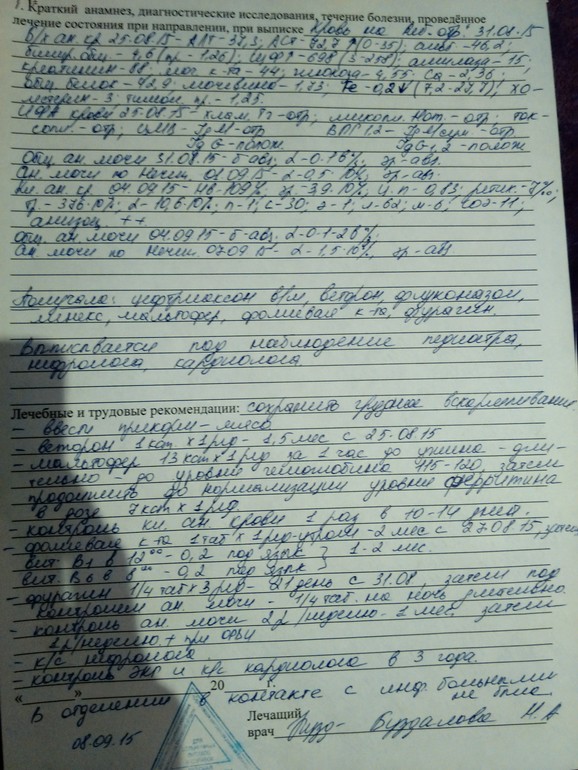 1. Краткий анамнез, диагностические исследования, течение болезни, проведённое
лечение состояния при направлении, при выписке Кровь на 31.08.15
б/х ан. кр. 25.08.15 - АЛТ - 31,3; АСт - 82,7↑(0-35); 46,2;
4,6 (пр. - 1,26); амилаза - 15;
креатинин - 88; к-та - 44; глюкоза - 4,55; Ca - 2,36;
общ. белок - 72,9; мочевина - 1,73; Fe - 0,2↓ (7,2-27,7); хо-
лестерин - 3; тимол. пр. - 1,25.
ИФА крови 25.08.15 - хлам. Tr - отр; микопл. Hom. - отр; ток-
сопл. - отр; ЦМВ - JgM - отр ВПГ 1,2 - JgM - отр
JgG - полож. JgG 1,2 - полож
Общ. ан. мочи 31.08.15 - б - abs; L - 0-1 эр - abs.
Ан. мочи по Нечип. 01.09.15 - L - 0,5·10⁶/л, эр - abs.
Кл. ан. кр. 04.09.15 - Нв - 109 эр. - 3,9·10 ц.п. - 0,83; ретик. - 7‰;
L - 10,6·10⁹/л; п - 1; с - 30; э - 1; л - 62; м - 6; соэ - 11;
анизоц. ++
Общ. ан. мочи 04.09.15 - б - abs; L - 0-1-2 в п/з;
Ан. мочи по Нечип. 07.09.15 - L - 1,5·10⁶/л, эр - abs.
Получала: цефтриаксон в/м, веторон, флуконазол,
линекс, мальтофер, фолиевая к-та, фурагин.
Выписывается под наблюдение педиатра,
нефролога, кардиолога.
Лечебные и трудовые рекомендации: сохранить грудное вскармливание
- ввести прикорм - мясо
- веторон 1 кап х 1 р/д - 1,5 мес с 25.08.15
- мальтофер 13 кап х 1 р/д за 1 час до ужина - дли-
тельно - до уровня гемоглобина 115-120, затем
продолжить до нормализации уровня ферритина
в дозе 7 кап х 1 р/д
- контроль кл. ан. крови 1 раз в 10-14 дней.
- фолиевая к-та 1 таб х 1 р/д утром - 2 мес с 27.08.15, затем
вит. В1 в 12⁰⁰ - 0,2 под язык } 1-2 мес.
вит. В6 в 8⁰⁰ - 0,2 под язык
- фурагин 1/4 таб х 3 р/д - 21 день с 31.08, затем под
контролем ан. мочи - 1/4 таб. на ночь длительно.
- контроль ан. мочи 2 р/неделю - 1 мес, затем
1 р/неделю + при ОРВИ
- к/с нефролога.
- контроль ЭКГ и к/с кардиолога в 3 года.
« » 20 г.
В отделении в контакте с инф. больными
не была.
Лечащий
врач
08.09.15